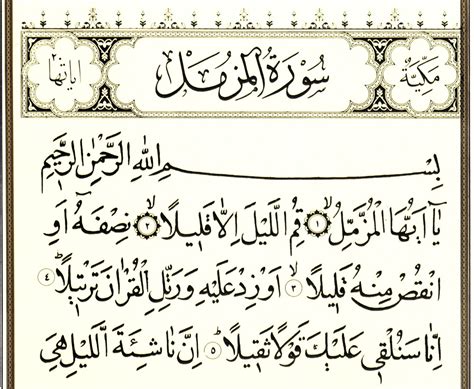 مَكِّيَّةٌ
سُورَةُ الْمُزَّمِّلِ
اٰيَاتُهَا ٢٠
بِسْمِ اللهِ الرَّحْمٰنِ الرَّحِيمِ
يَٓا اَيُّهَا الْمُزَّمِّلُۙ ﴿١﴾ قُمِ الَّيْلَ اِلَّا قَلِيلًاۙ ﴿٢﴾ نِصْفَهُٓ اَوِ
انْقُصْ مِنْهُ قَلِيلًاۙ ﴿٣﴾ اَوْ زِدْ عَلَيْهِ وَرَتِّلِ الْقُرْاٰنَ تَرْتِيلًاۜ ﴿٤﴾
اِنَّا سَنُلْقِي عَلَيْكَ قَوْلًا ثَقِيلًا ﴿٥﴾ اِنَّ نَاشِئَةَ الَّيْلِ هِيَ